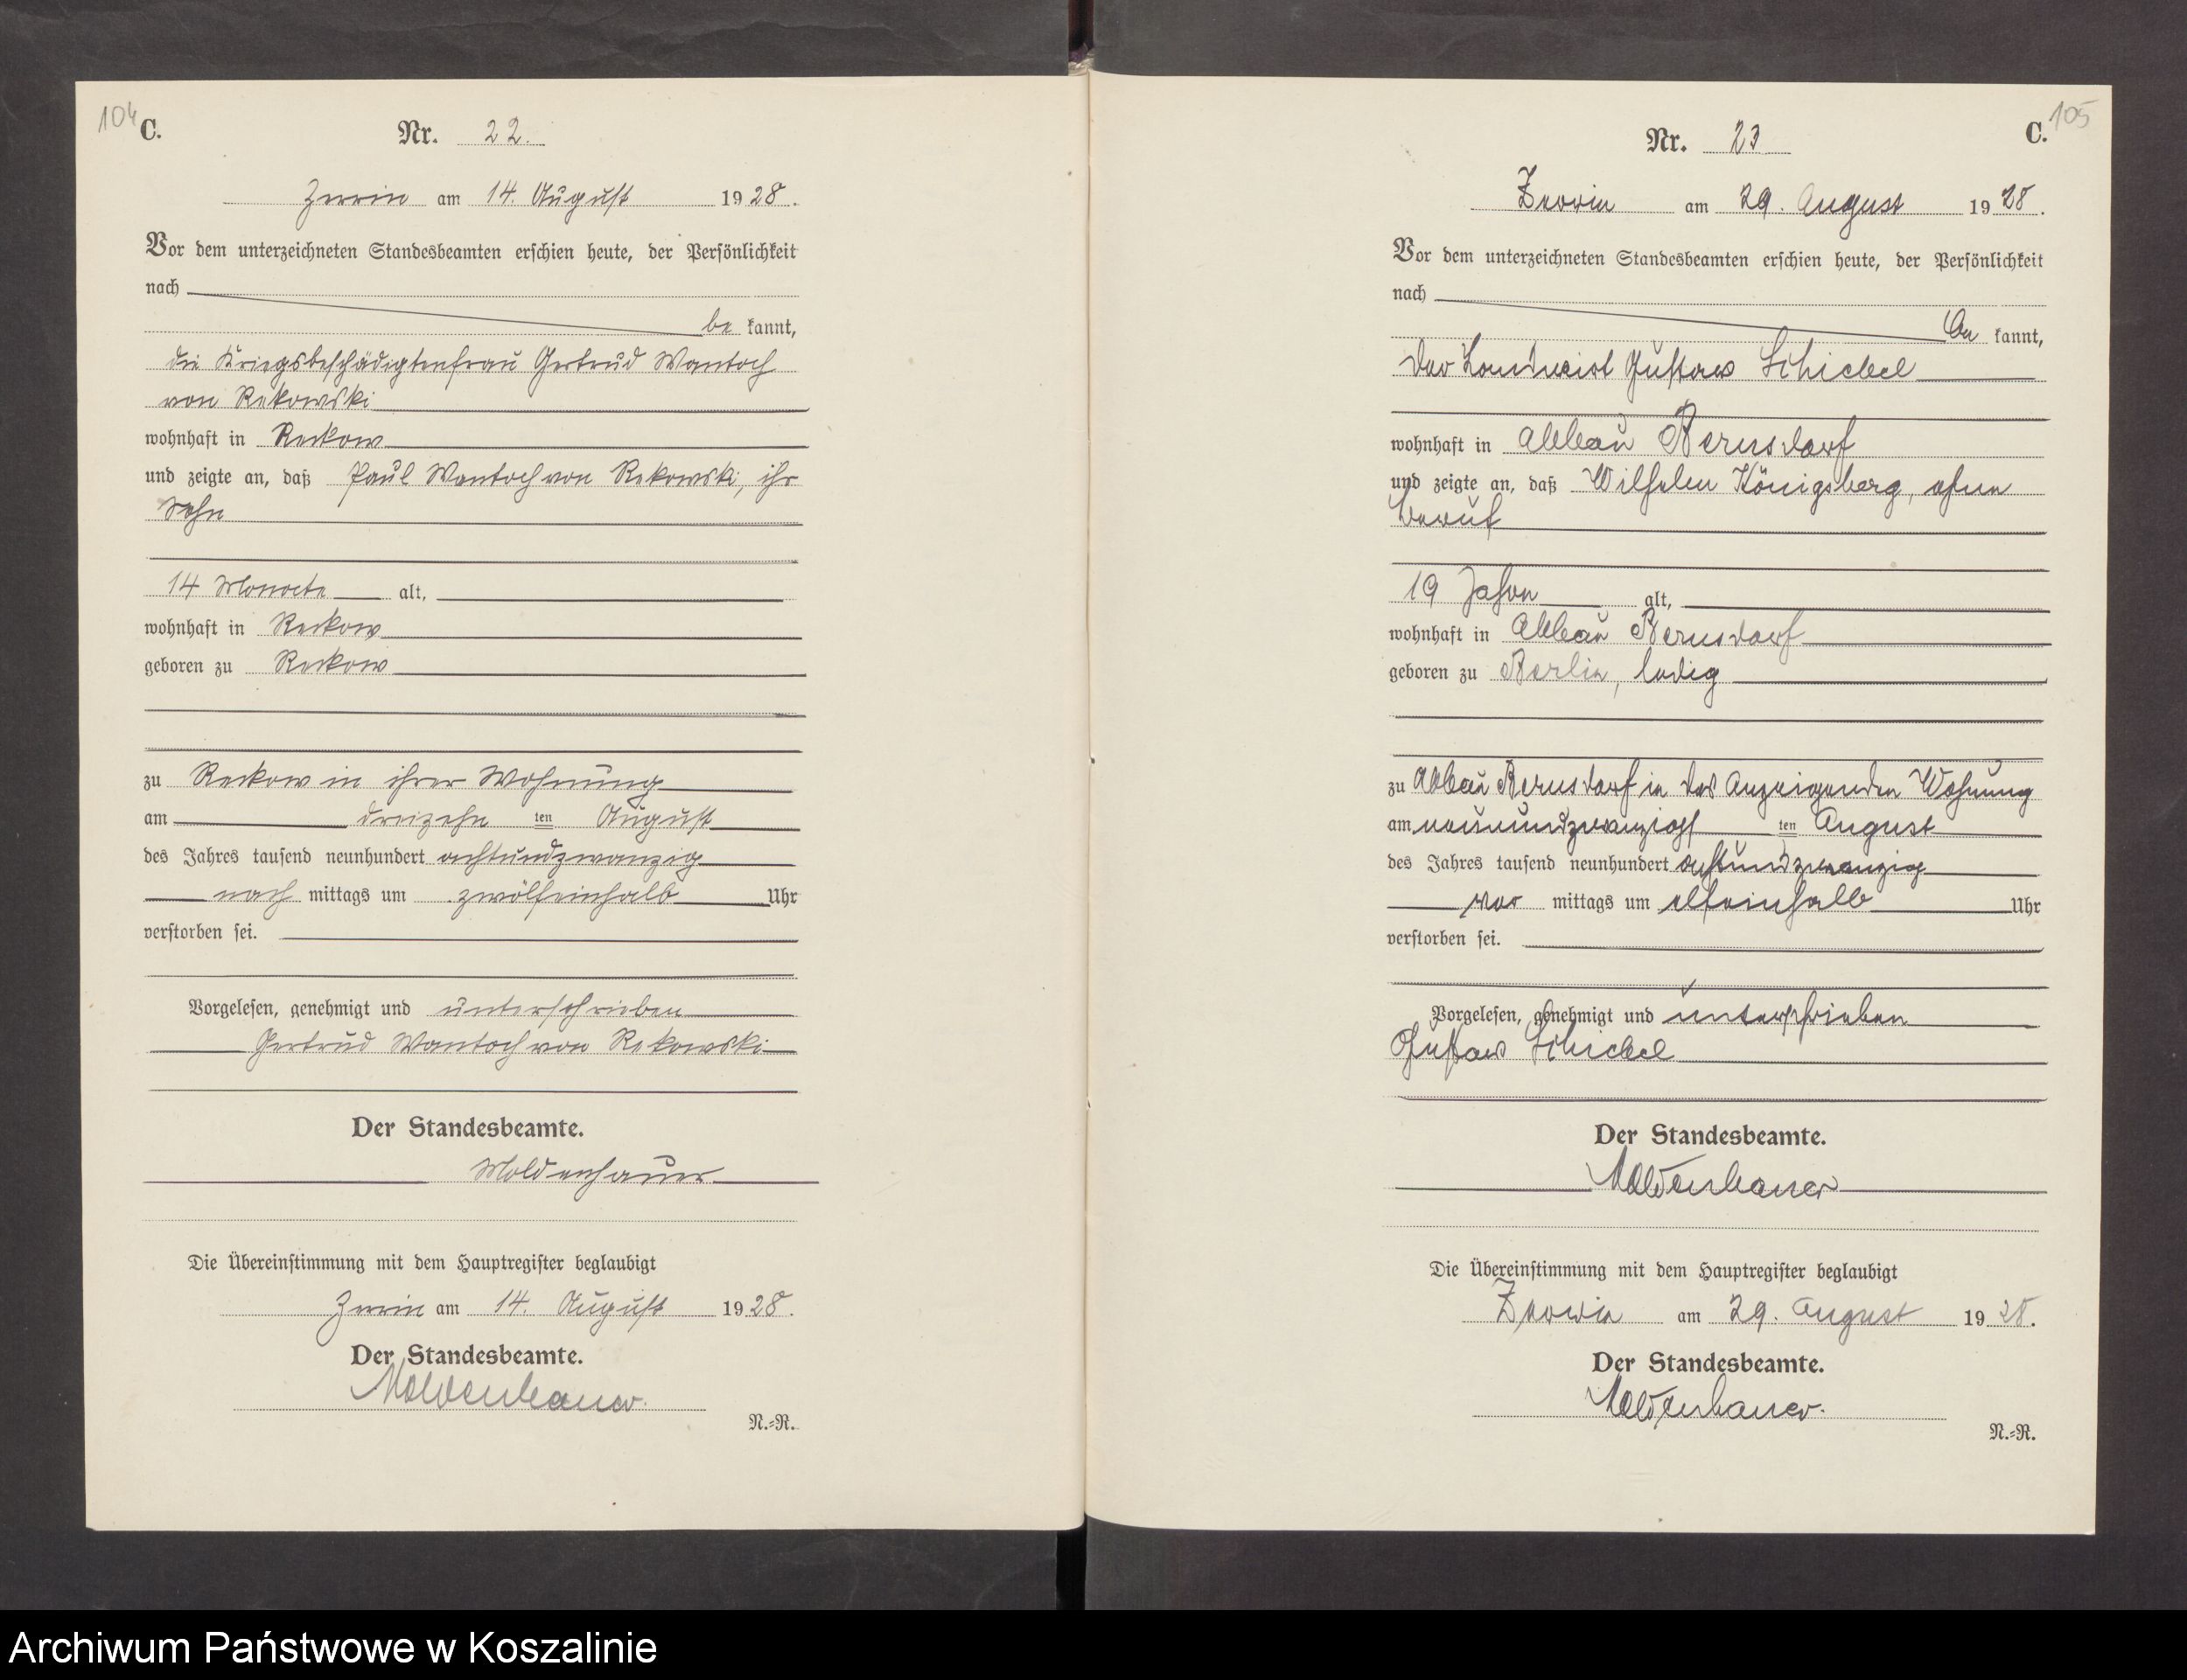 104
C.
Nr. 22.
Zerrin am 14. August 1928.
Vor dem unterzeichneten Standesbeamten erschien heute, der Persönlichkeit
nach
be kannt,
die Kriegsbeschädigtenfrau Gertrud Wantoch
von Rekowski
wohnhaft in Reckow
und zeigte an, daß Paul Wantoch von Rekowski, ihr
Sohn
14 Monate alt,
wohnhaft in Reckow
geboren zu Reckow
zu Reckow in ihrer Wohnung
am dreizehn ten August
des Jahres tausend neunhundert achtundzwanzig
nach mittags um zwölfeinhalb Uhr
verstorben sei.
Vorgelesen, genehmigt und unterschrieben
Gertrud Wantoch von Rekowski
Der Standesbeamte.
Moldenhauer
Die Übereinstimmung mit dem Hauptregister beglaubigt
Zerrin am 14. August 1928.
Der Standesbeamte.
Moldenhauer.
N.-R.
105
C.
Nr. 23
Zerrin am 29. August 1928.
Vor dem unterzeichneten Standesbeamten erschien heute, der Persönlichkeit
nach
be kannt,
der Landwirt Gustav Schiebel
wohnhaft in Abbau Bernsdorf
und zeigte an, daß Wilhelm Königsberg, ohne
Beruf
19 Jahre alt,
wohnhaft in Abbau Bernsdorf
geboren zu Berlin, ledig
zu Abbau Bernsdorf in des Anzeigenden Wohnung
am neunundzwanzigst ten August
des Jahres tausend neunhundert achtundzwanzig
vor mittags um elfeinhalb Uhr
verstorben sei.
Vorgelesen, genehmigt und unterschrieben
Gustav Schiebel
Der Standesbeamte.
Moldenhauer
Die Übereinstimmung mit dem Hauptregister beglaubigt
Zerrin am 29. August 1928.
Der Standesbeamte.
Moldenhauer.
N.-R.
Archiwum Państwowe w Koszalinie